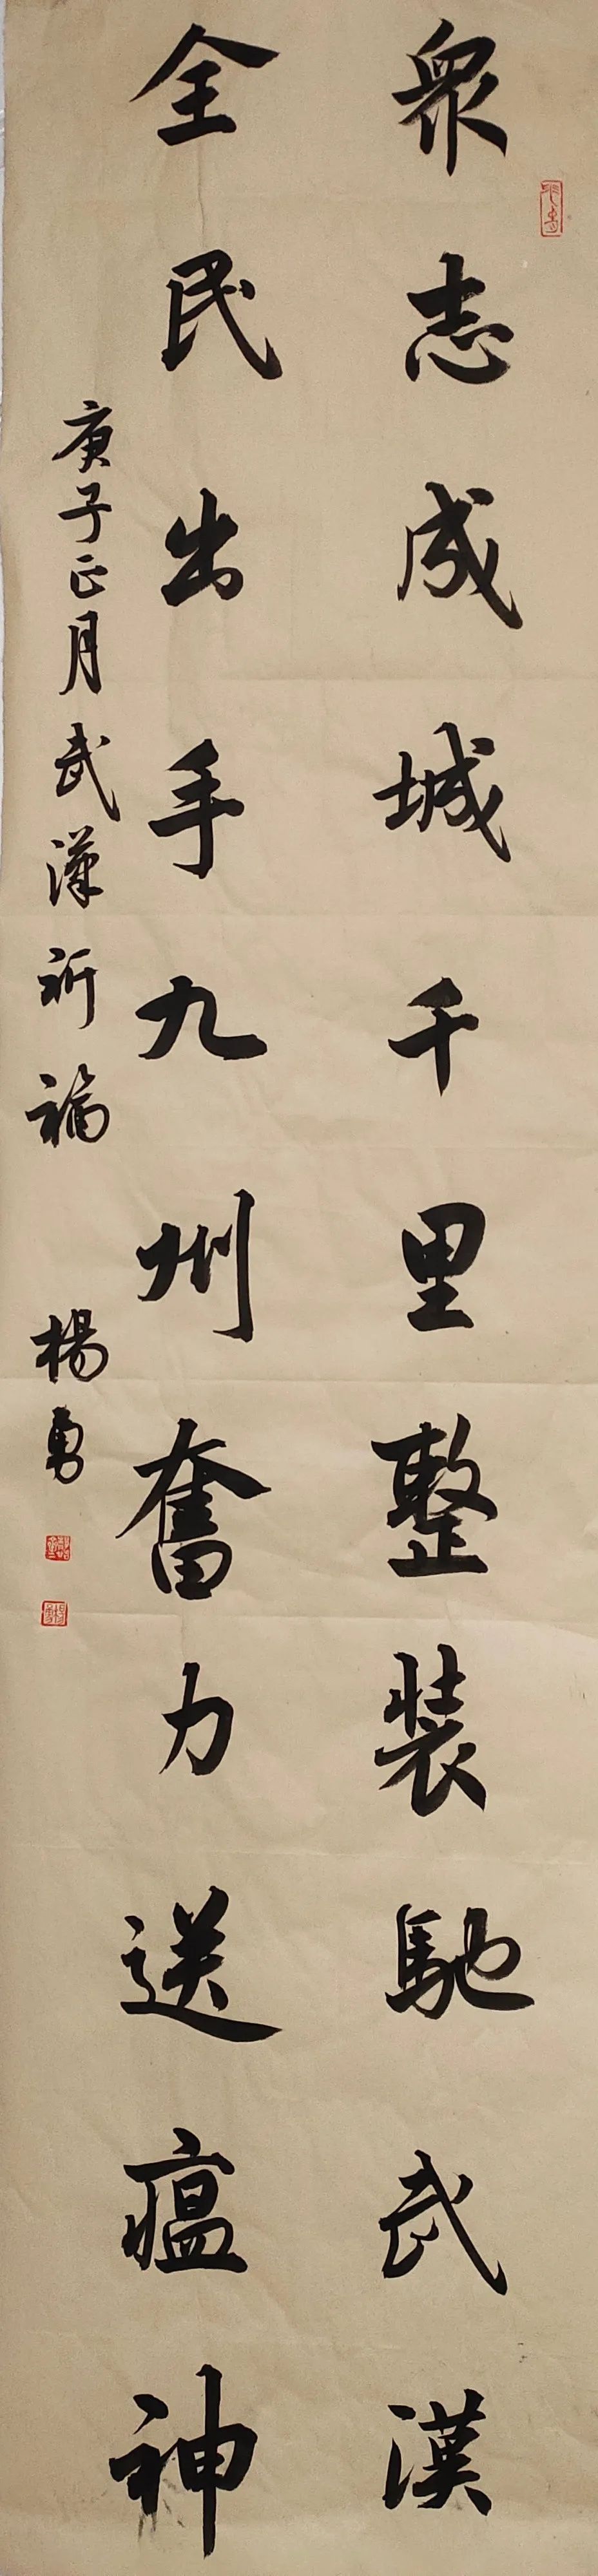 衆志成城千里整装馳武漢
全民出手九州奮力送瘟神
庚子正月武漢祈福 楊勇